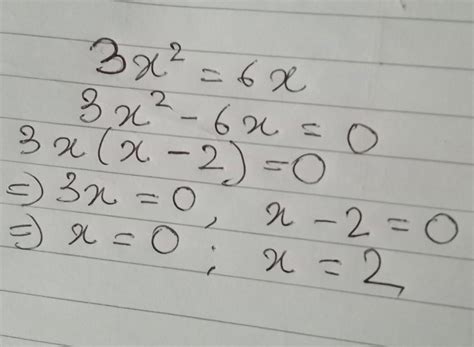 3x² = 6x
3x² - 6x = 0
3x(x - 2) = 0
=) 3x = 0, x - 2 = 0
=) x = 0; x = 2,